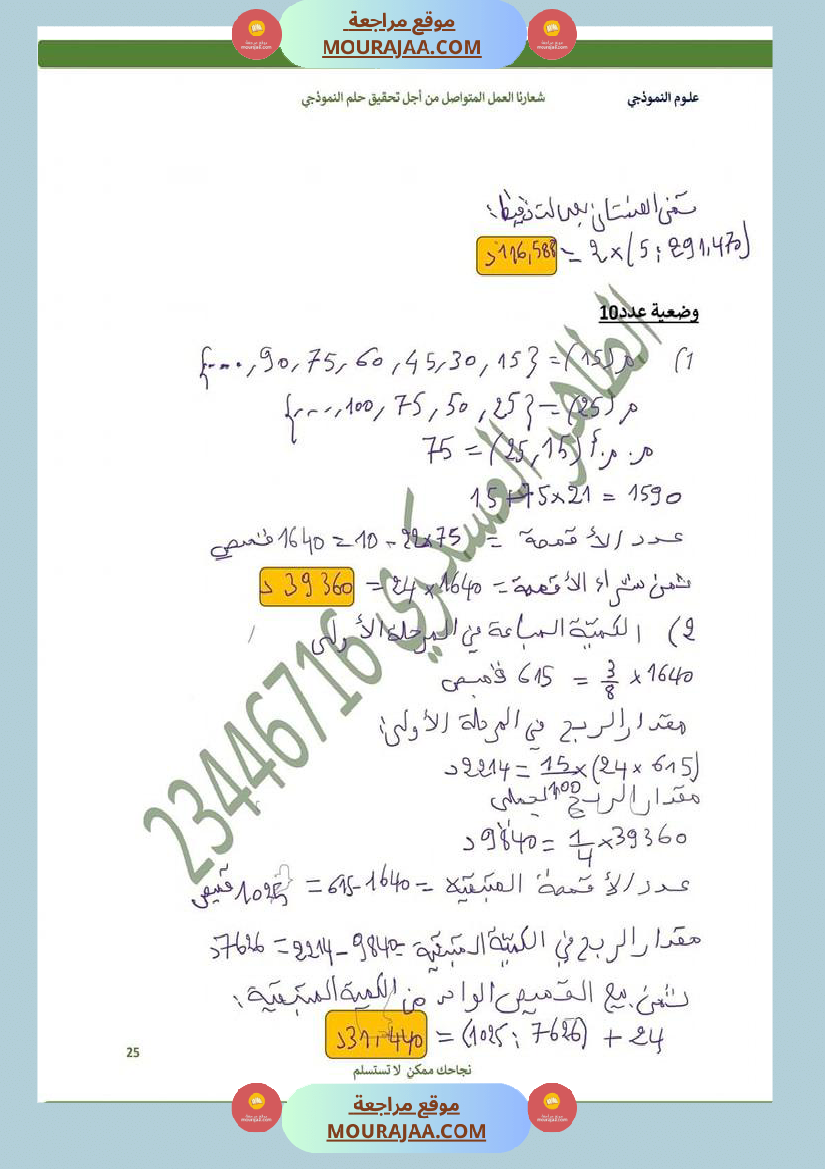 موقع مراجعة
MOURAJAA.COM
علوم النموذجي
شعارنا العمل المتواصل من أجل تحقيق حلم النموذجي
ثمن الفستان بعد التخفيض:
2 x (5 : 291,470) = 116,588د
وضعية عدد10
1) م(15) = {15 ,30 ,45 ,60 ,75 ,90 ,....}
م(25) = {25 ,50 ,75 ,100 ,....}
م.م.أ (15 ,25) = 75
1590 = 21x75+15
عدد الأقمصة = 75x22 - 10 = 1640 قميص
ثمن شراء الأقمصة = 1640 x 24 = 39360 د
2) الكميّة المباعة في المرحلة الأولى
1640 x 3/8 = 615 قميص
مقدار الربح في المرحلة الأولى:
(615 x 24) x 15/100 = 2214د
مقدار الربح الجملي
39360 x 1/4 = 9840د
عدد الأقمصة المتبقية = 1640 - 615 = 1025 قميص
مقدار الربح في الكميّة المتبقية = 9840 - 2214 = 7626د
ثمن بيع القميص الواحد من الكمية المتبقية:
24 + (7626 : 1025) = 31,440د
الطاهر العسكري 23446716
25
نجاحك ممكن لا تستسلم
موقع مراجعة
MOURAJAA.COM